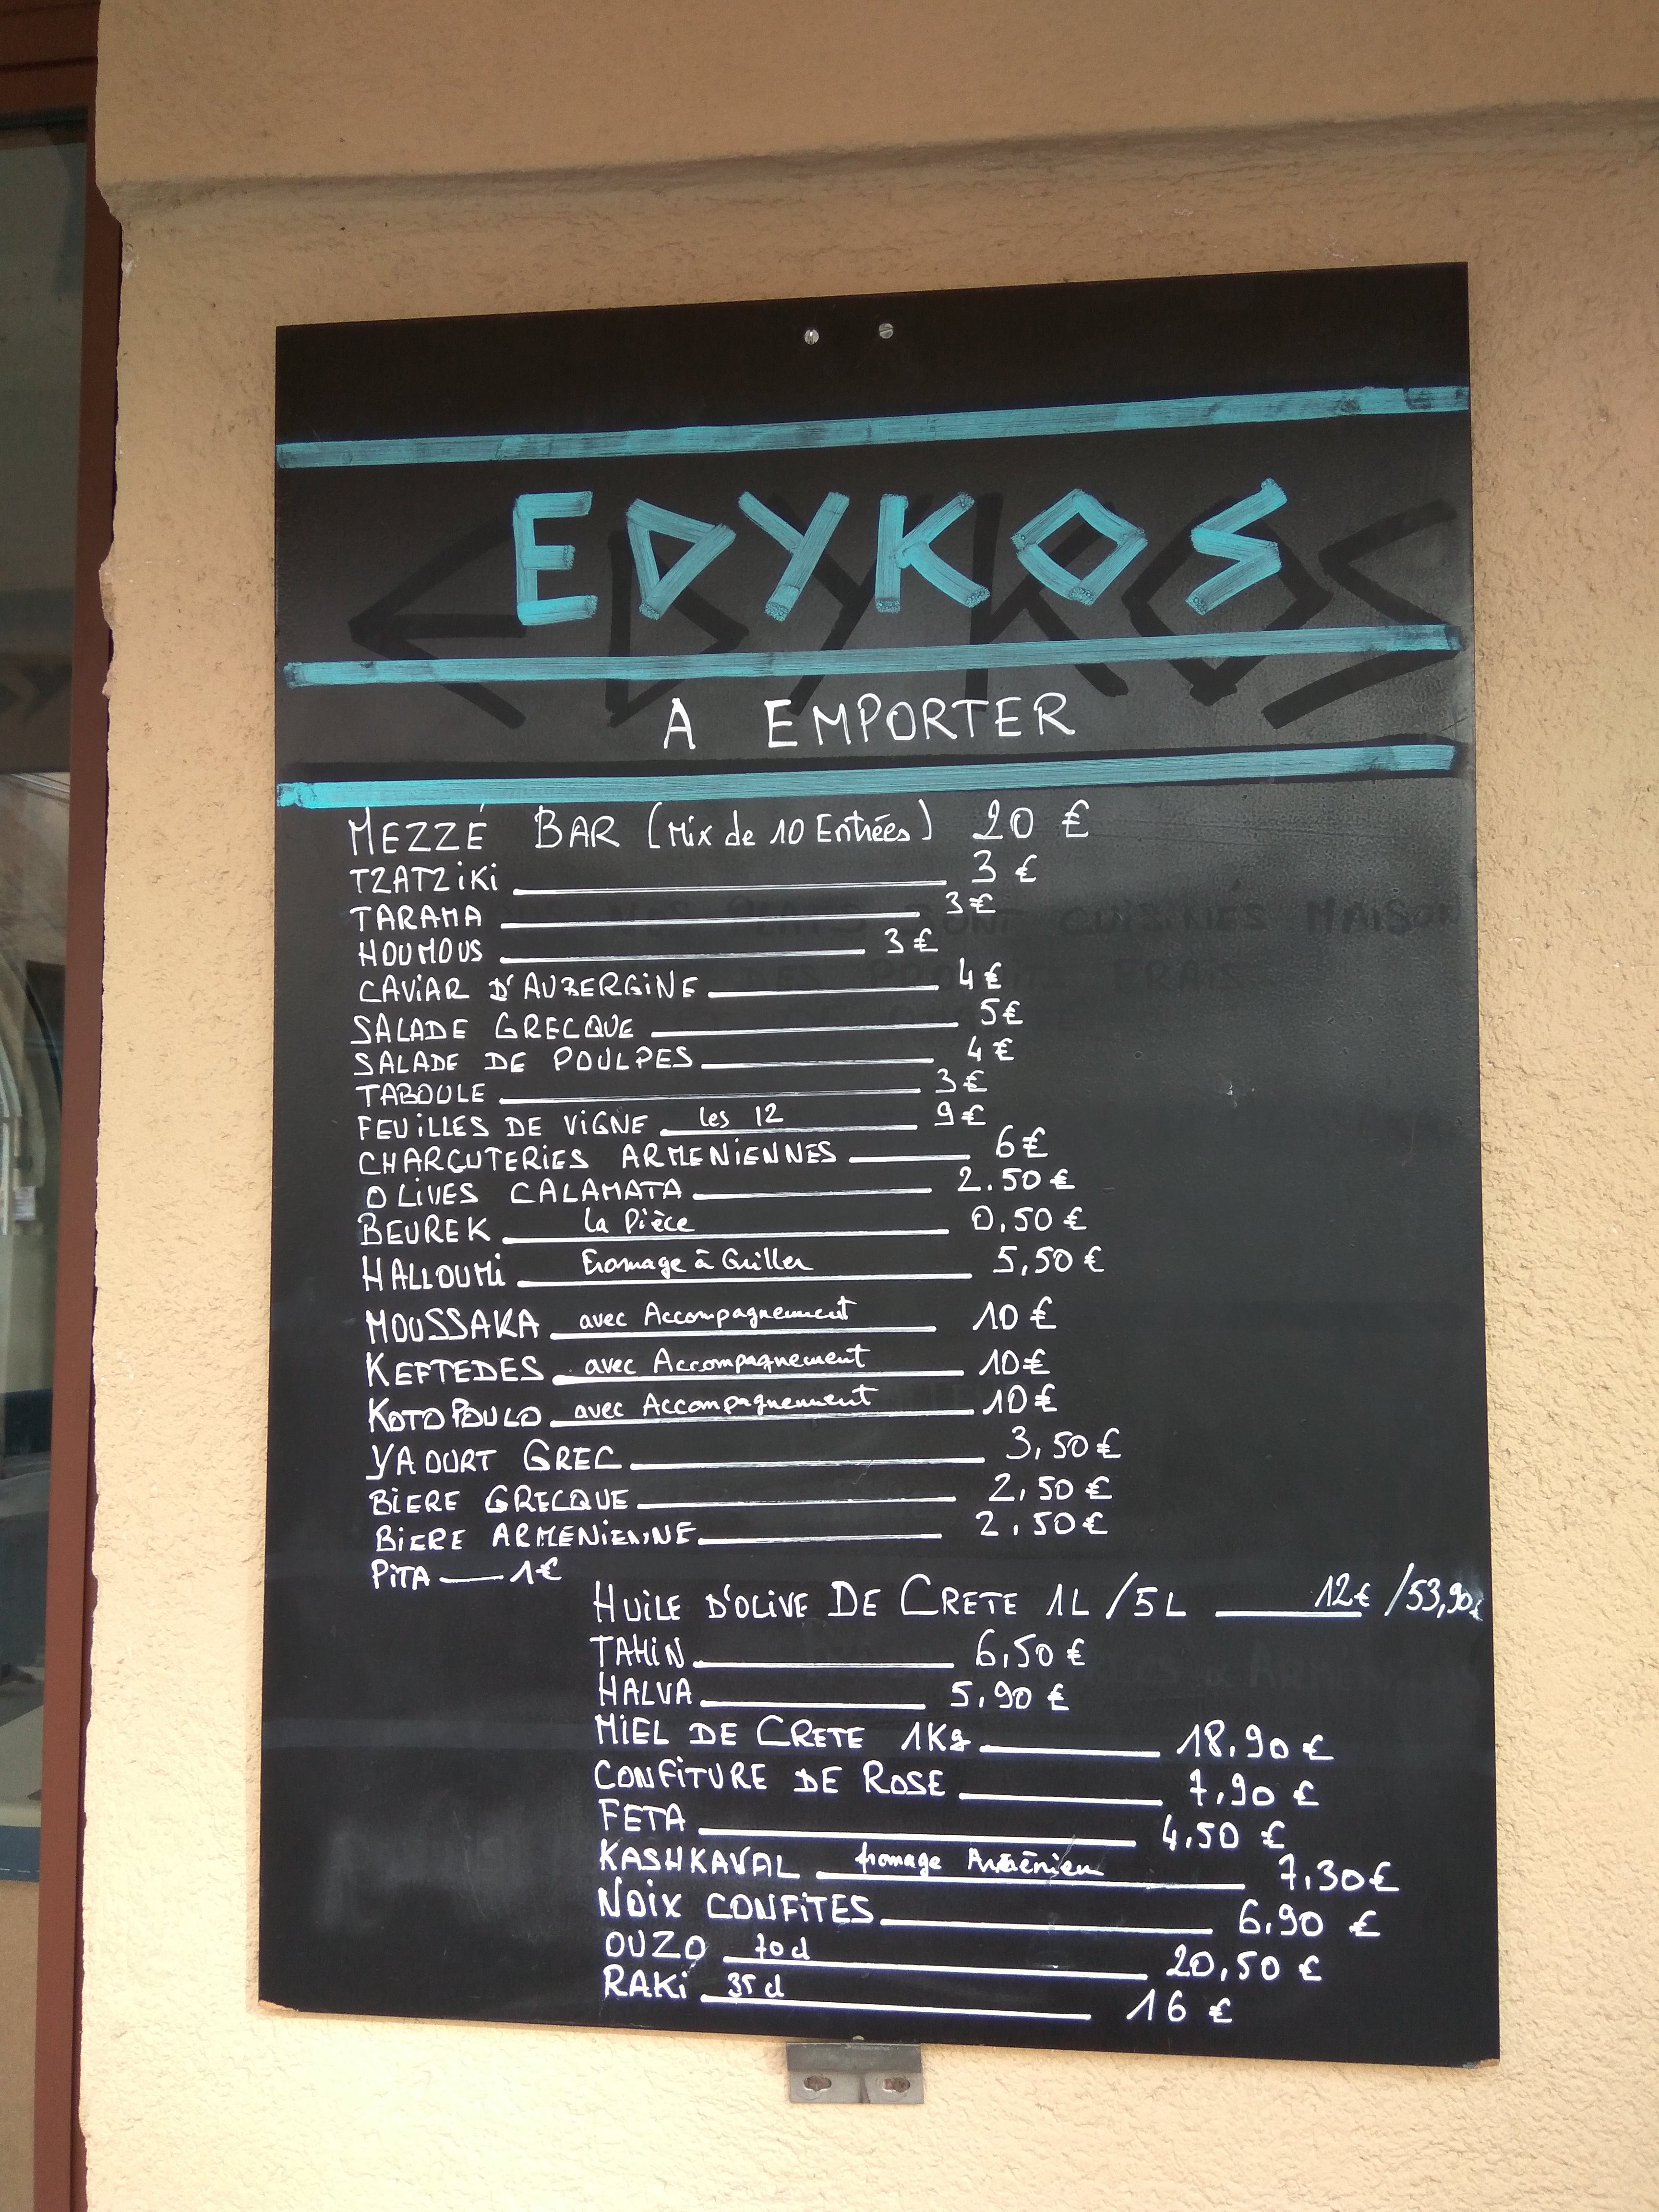 EDYKOS
A EMPORTER
MEZZÉ BAR (Mix de 10 Entrées) 20 €
TZATZIKI 3 €
TARAMA 3€
HOUMOUS 3€
CAVIAR D'AUBERGINE 4€
SALADE GRECQUE 5€
SALADE DE POULPES 4€
TABOULE 3€
FEUILLES DE VIGNE les 12 9€
CHARCUTERIES ARMENIENNES 6€
OLIVES CALAMATA 2.50€
BEUREK la Pièce 0,50€
HALLOUMI Fromage à Griller 5,50€
MOUSSAKA avec Accompagnement 10€
KEFTEDES avec Accompagnement 10€
KOTOPOULO avec Accompagnement 10€
YAOURT GREC 3,50€
BIERE GRECQUE 2,50€
BIERE ARMENIENNE 2,50€
PITA 1€
HUILE D'OLIVE DE CRETE 1L/5L 12€/53,90€
TAHIN 6,50€
HALVA 5,90€
MIEL DE CRETE 1Kg 18,90€
CONFITURE DE ROSE 7,90€
FETA 4,50€
KASHKAVAL fromage Arménien 7,30€
NOIX CONFITES 6,90€
OUZO 70cl 20,50€
RAKI 35cl 16€